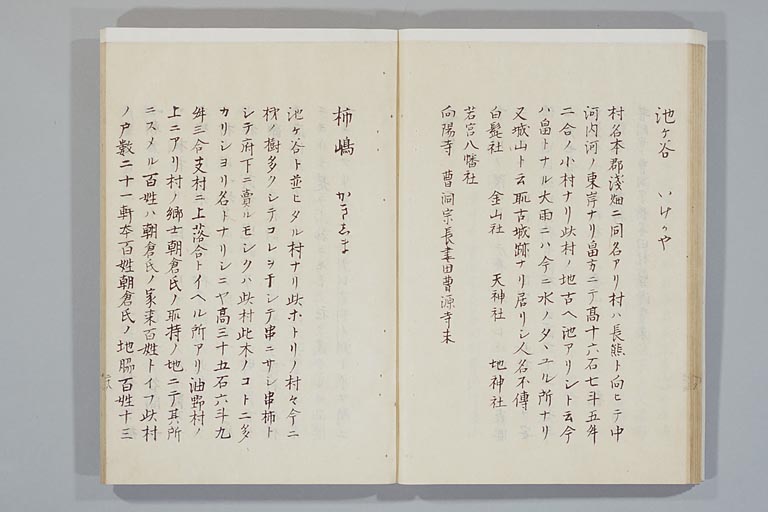 池ケ谷　いけがや
村名本郡浅畑ニ同名アリ村ハ長熊ト向ヒテ中
河内河ノ東岸ナリ畠方ニテ高十六石七斗五升
二合ノ小村ナリ此村ノ地古ヘ池アリシト云今
ハ畠トナル大雨ニハ今ニ水ノタヽユル所ナリ
又城山ト云所古城跡ナリ居リシ人名不傳
白髭社　金山社　天神社　地神社
若宮八幡社
向陽寺　曹洞宗長妻田曹源寺末
柿嶋　かきしま
池ケ谷ト並ヒタル村ナリ此ホトリノ村々今ニ
柿ノ樹多クシテコレヲ干シテ串ニサシ串柿ト
シテ府下ニ賣ルモシクハ此村此木ノコトニ多
カリシヨリ名トナリシニヤ高三十五石六斗九
舛三合支村ニ上落合トイヘル所アリ油野村ノ
上ニアリ村ノ郷士朝倉氏ノ所持ノ地ニテ其所
ニスメル百姓ハ朝倉氏ノ家来百姓トイフ此村
ノ戸数二十一軒本百姓朝倉氏ノ地脇百姓十三